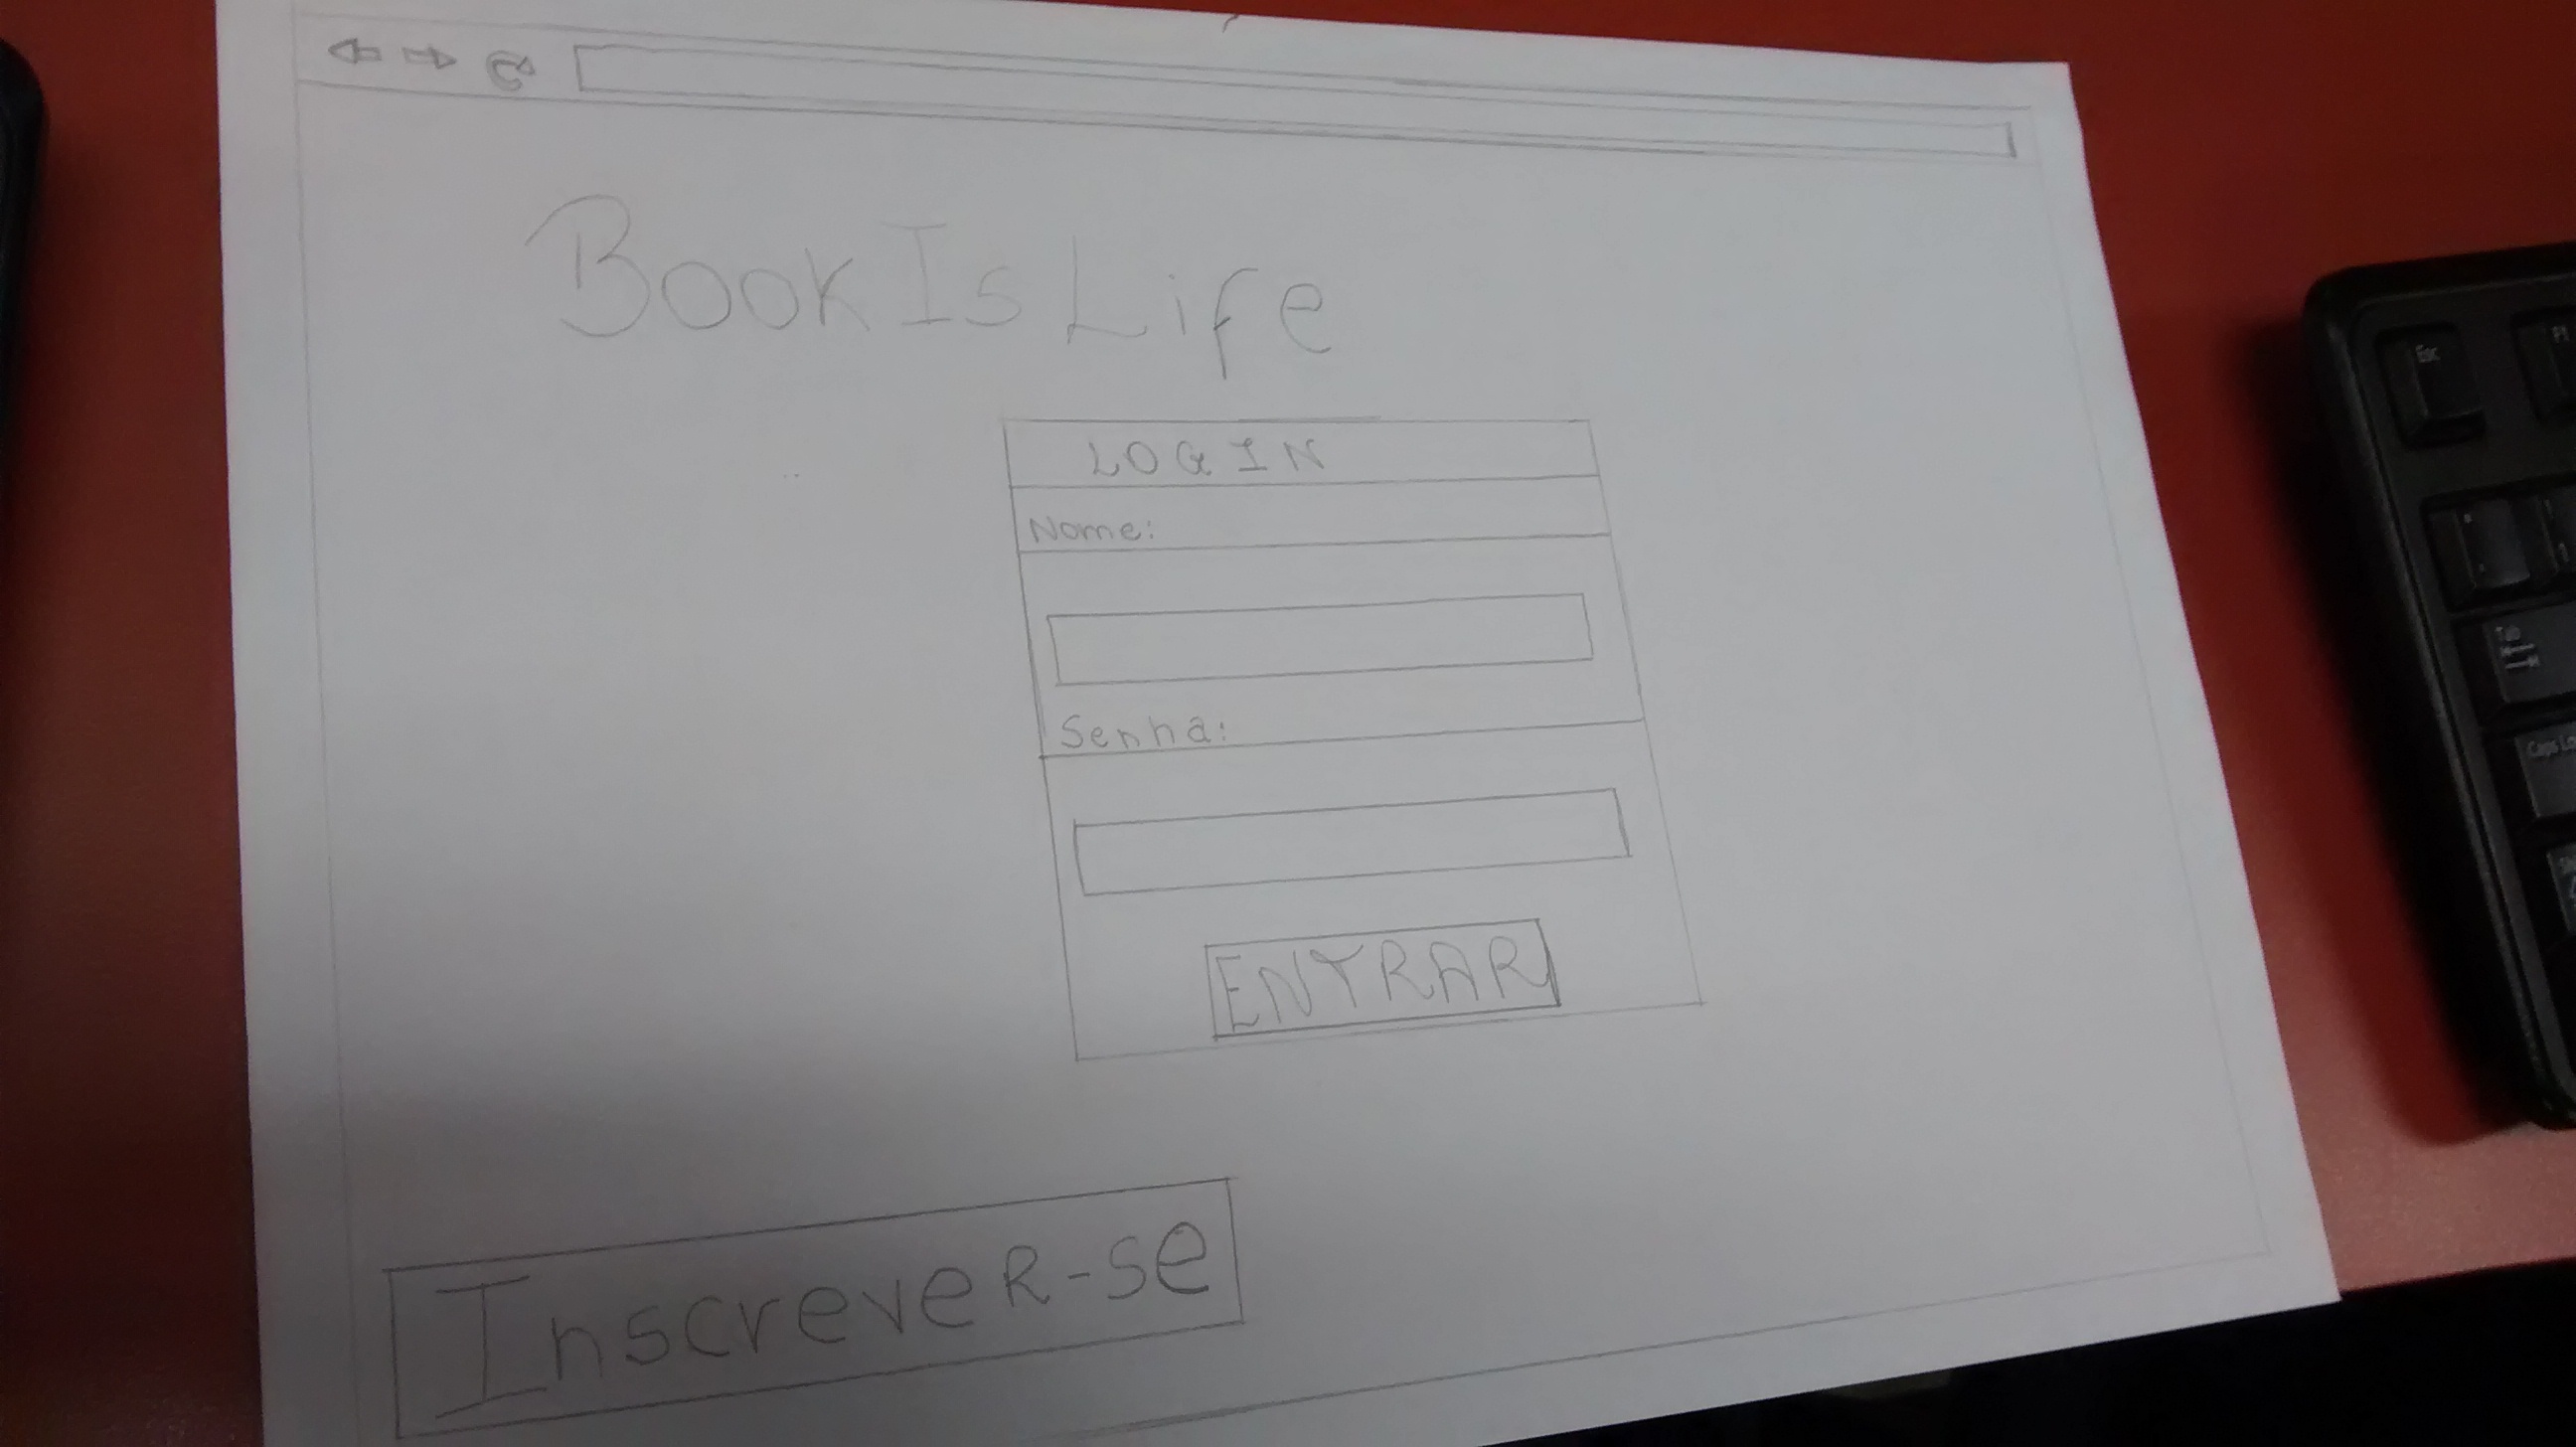 Book Is Life
LOGIN
Nome:
Senha:
ENTRAR
Inscrever-se
Esc
F1
Tab
Caps Lo